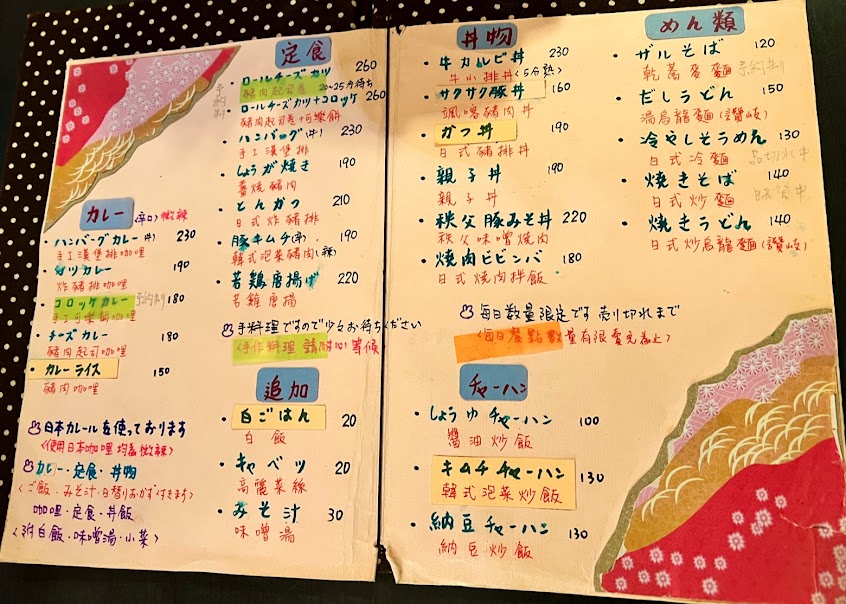 カレー (辛口) 微辣
・ハンバーグカレー(牛) 230
手工漢堡排咖哩
・カツカレー 190
炸豬排咖哩
・コロッケカレー 予約制 180
手工可樂餅咖哩
・チーズカレー 180
豬肉起司咖哩
・カレーライス 150
豬肉咖哩
日本カレールを使っております
<使用日本咖哩 均為微辣>
カレー・定食・丼物
<ご飯・みそ汁・日替りおかず付きます>
咖哩・定食・丼飯
<附白飯・味噌湯・小菜>
定食
予約制
・ロールチーズカツ 260
豬肉起司卷 20~25分待ち
・ロールチーズカツ+コロッケ 260
豬肉起司卷+可樂餅
・ハンバーグ(牛) 230
手工漢堡排
・しょうが焼き 190
薑燒豬肉
・とんかつ 210
日式炸豬排
・豚キムチ(辛) 190
韓式泡菜豬肉(辣)
・若鶏唐揚げ 220
若雞唐揚
手料理ですので少々お待ちください
<手作料理 請耐心等候>
追加
・白ごはん 20
白飯
・キャベツ 20
高麗菜絲
・みそ汁 30
味噌湯
丼物
・牛カルビ丼 230
牛小排丼(5分熟)
・サクサク豚丼 160
颯嗚豬肉丼
・かつ丼 190
日式豬排丼
・親子丼 190
親子丼
・秩父豚みそ丼 220
秩父味噌燒肉
・焼肉ビビンバ 180
日式燒肉拌飯
毎日数量限定です 売り切れまで
<每日餐點數量有限賣完為止>
チャーハン
・しょうゆチャーハン 100
醬油炒飯
・キムチチャーハン 130
韓式泡菜炒飯
・納豆チャーハン 130
納豆炒飯
めん類
・ザルそば 120
乾蕎麥麵 予約制
・だしうどん 150
湯烏龍麵(讚岐)
・冷やしそうめん 130
日式冷麵 品切れ中
・焼きそば 140
日式炒麵
・焼きうどん 140
日式炒烏龍麵(讚岐)